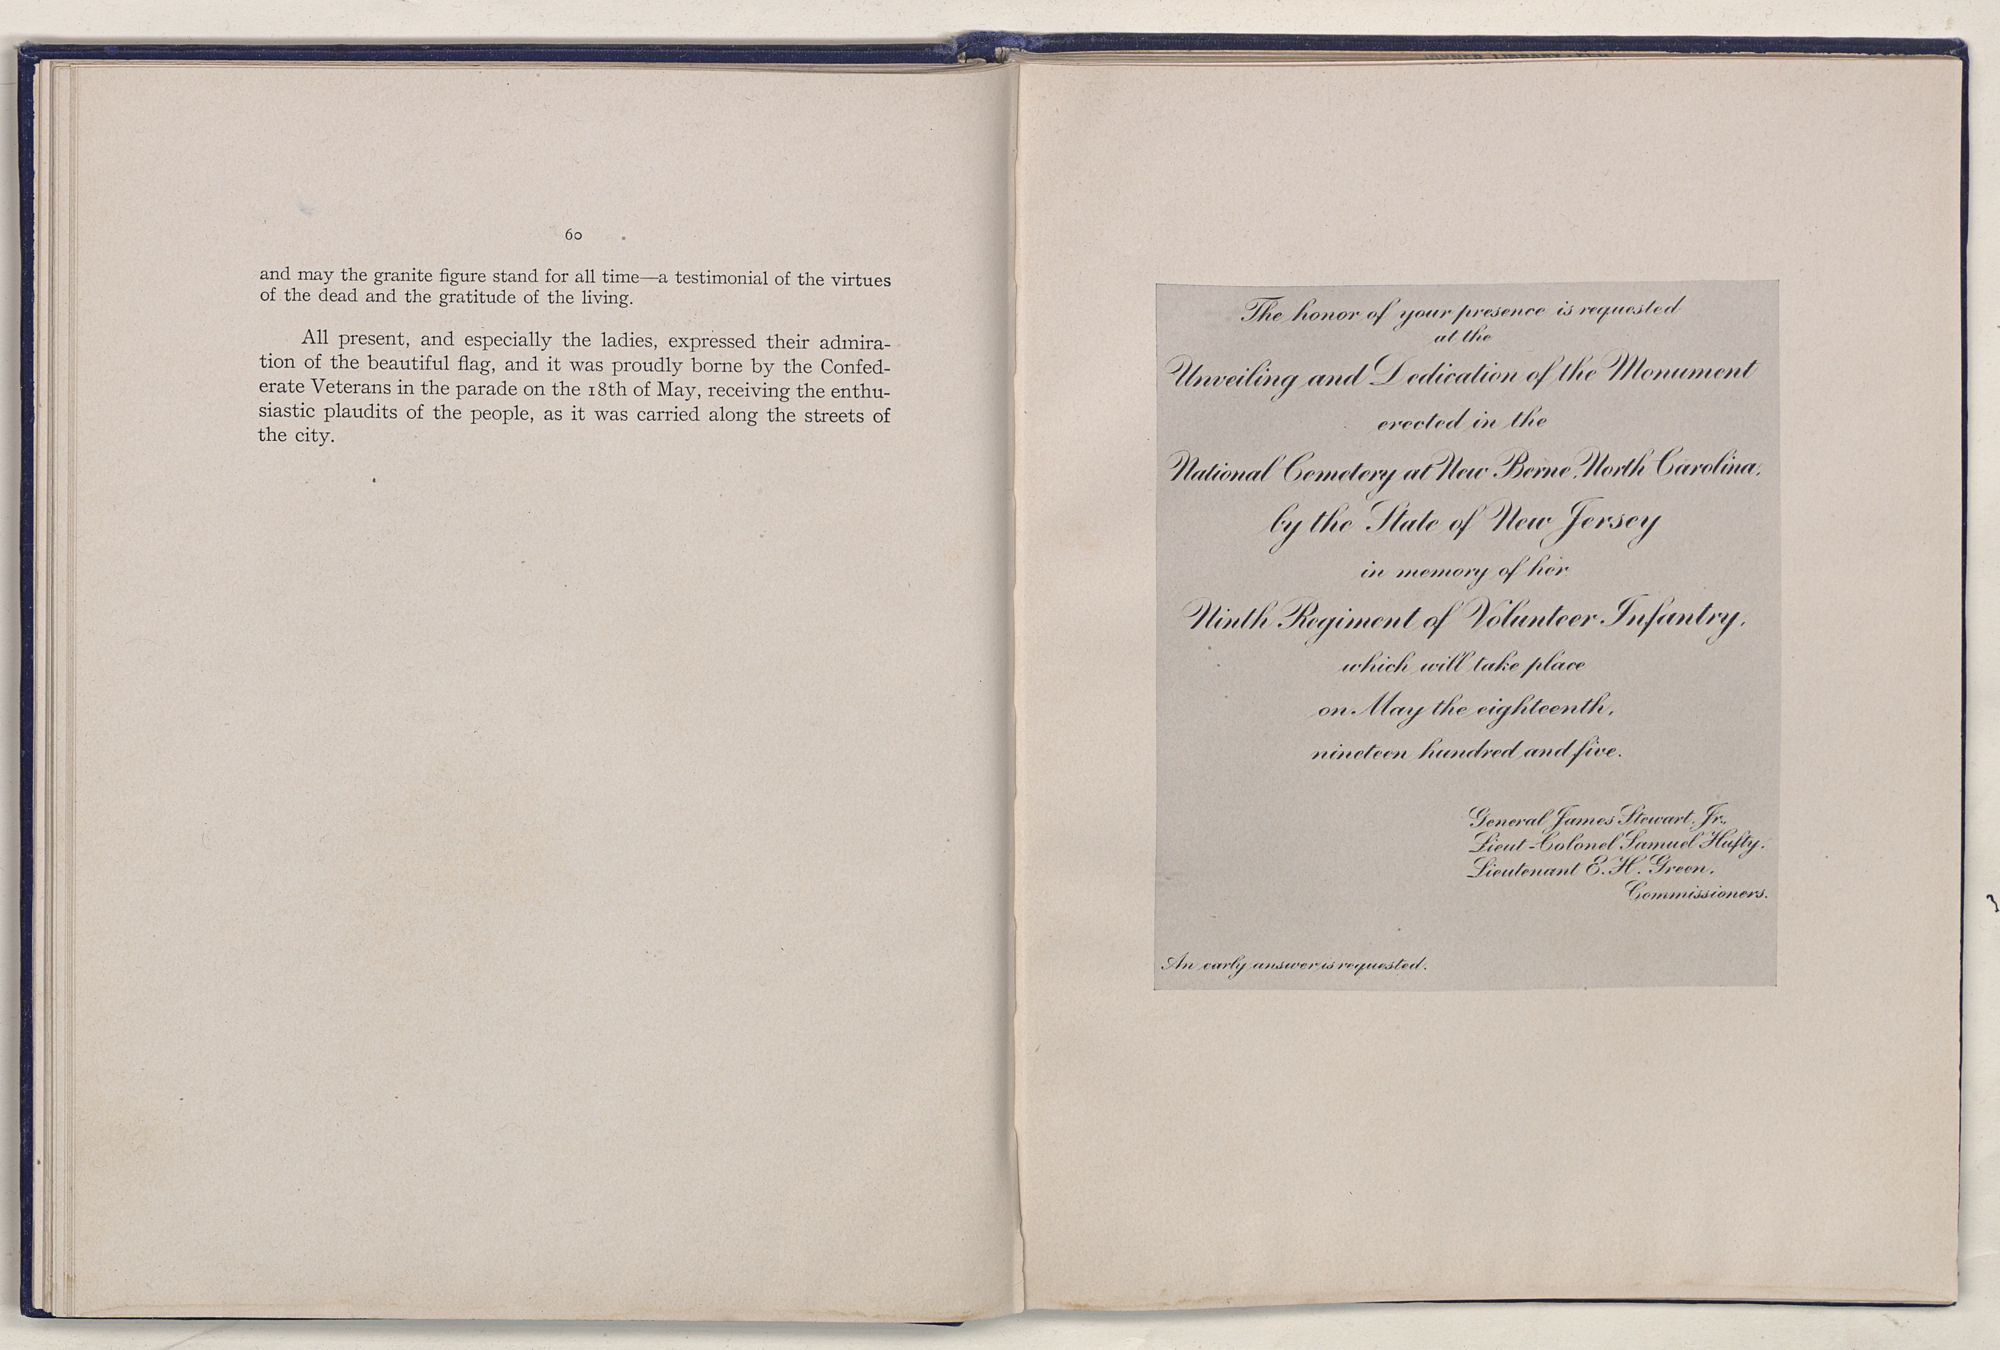 60
and may the granite figure stand for all time—a testimonial of the virtues
of the dead and the gratitude of the living.
All present, and especially the ladies, expressed their admira-
tion of the beautiful flag, and it was proudly borne by the Confed-
erate Veterans in the parade on the 18th of May, receiving the enthu-
siastic plaudits of the people, as it was carried along the streets of
the city.
The honor of your presence is requested
at the
Unveiling and Dedication of the Monument
erected in the
National Cemetery at New Berne, North Carolina,
by the State of New Jersey
in memory of her
Ninth Regiment of Volunteer Infantry,
which will take place
on May the eighteenth,
nineteen hundred and five.
General James Stewart, Jr.,
Lieut-Colonel Samuel Hufty,
Lieutenant E. H. Green,
Commissioners.
An early answer is requested.